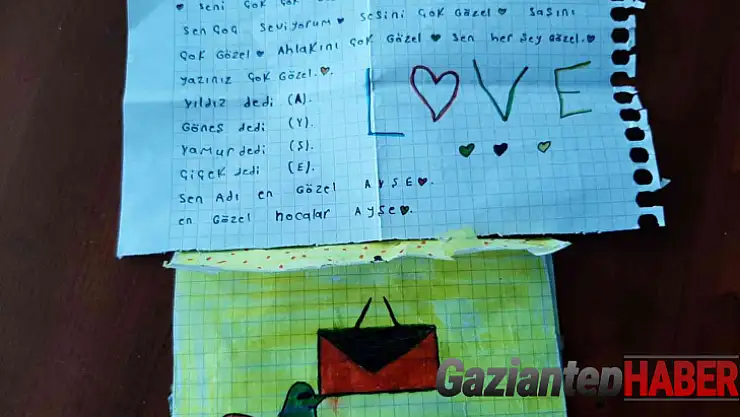 ♥ seni çok çok
sen çoç seviyorum♥ sesini çok Gözel♥ saşını
çok Gözel♥ Ahlakını çok Gözel♥ sen her şey Gözel.♥
yazınız çok Gözel.♥
yıldız dedi (A).
Göneş dedi (Y).
yamur dedi (Ş).
çiçek dedi (E).
Sen Adı en Gözel AYŞE♥.
en Gözel hocalar AYŞe♥.
L♥VE
GaziantepHABER